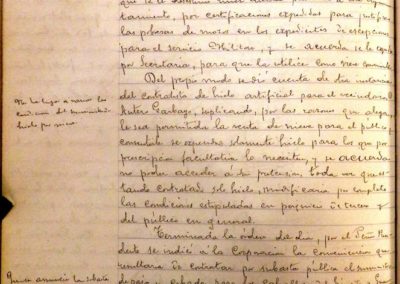 tamiento, por certificaciones expedidas para justificar
las pobrezas de mozos en los expedientes de excepciones
para el servicio Militar, y se acuerda se le expida
por Secretaría, para que la utilice como crea conveniente.
Del propio modo se dió cuenta de dos instancias
del contratista de hielo artificial para el vecindario,
suplicando, por las razones que alega,
le sea permitida la venta de nieve para el público,
solamente hielo para lo que por
prescripción facultativa lo necesite, y se acuerda
no poder acceder á su pretensión, toda vez que es-
tando contratado solo hielo, modificaría por completo
las condiciones estipuladas en perjuicio de tercero y
del público en general.
Terminada la órden del día, por el Señor Presi-
dente se indicó á la Corporación la conveniencia que
resultaría de contratar por subasta pública el suministro
No ha lugar a variar las
condiciones del suministro
hielo por nieve.
Que se anuncie la subasta